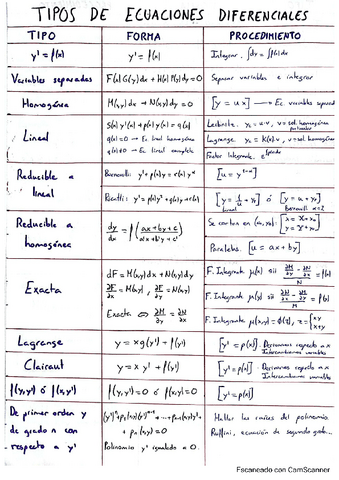 TIPOS DE ECUACIONES DIFERENCIALES
TIPO FORMA PROCEDIMIENTO
y' = f(x) y' = f(x) Integrar. ∫dy = ∫f(x)dx
Variables separadas F(x)G(y)dx + H(x)P(y)dy = 0 Separar variables e integrar
Homogénea M(x,y)dx + N(x,y)dy = 0 [y = ux] → Ec. variables separad
Lineal
S(x)y'(x) + p(x)y(x) = q(x)
q(x)=0 → Ec. lineal homogénea
q(x)≠0 → Ec. lineal completa
Leibnitz. y = u·v, v = sol. homogénea
particular
Lagrange. y = K(x)·v, v = sol. homogénea
Factor Integrante.
Reducible a
lineal
Bernoulli:
[u = y
Riccati:
ó [y = u + y
lineal Bernoulli
Reducible a
homogénea
dy/dx = f((ax+by+c)/(a'x+b'y+c'))
Se cortan en (x₀,y₀): [x = X+x₀
y = Y+y₀]
Paralelas. [u = ax+by]
Exacta
dF = M(x,y)dx + N(x,y)dy
∂F/∂x = M(x,y), ∂F/∂y = N(x,y)
Exacta ⇔ ∂M/∂y = ∂N/∂x
F. Integrante μ(x) sii
F. Integrante μ(y) sii
F. Integrante μ(x,y) =
Lagrange y = xg(y') + f(y') [y' = p(x)] . Derivamos respecto a x
Intercambiamos variables
Clairaut y = xy' + f(y') [y' = p(x)] . Derivamos respecto a x
Intercambiamos variables
f(y,y') ó f(x,y') f(y,y')=0 ó f(x,y')=0 [y' = p(x)]
De primer orden y
de grado n con
respecto a y'
Polinomio y' igualado a 0.
Hallar las raíces del polinomio
Ruffini, ecuación de segundo grado...
Escaneado con CamScanner